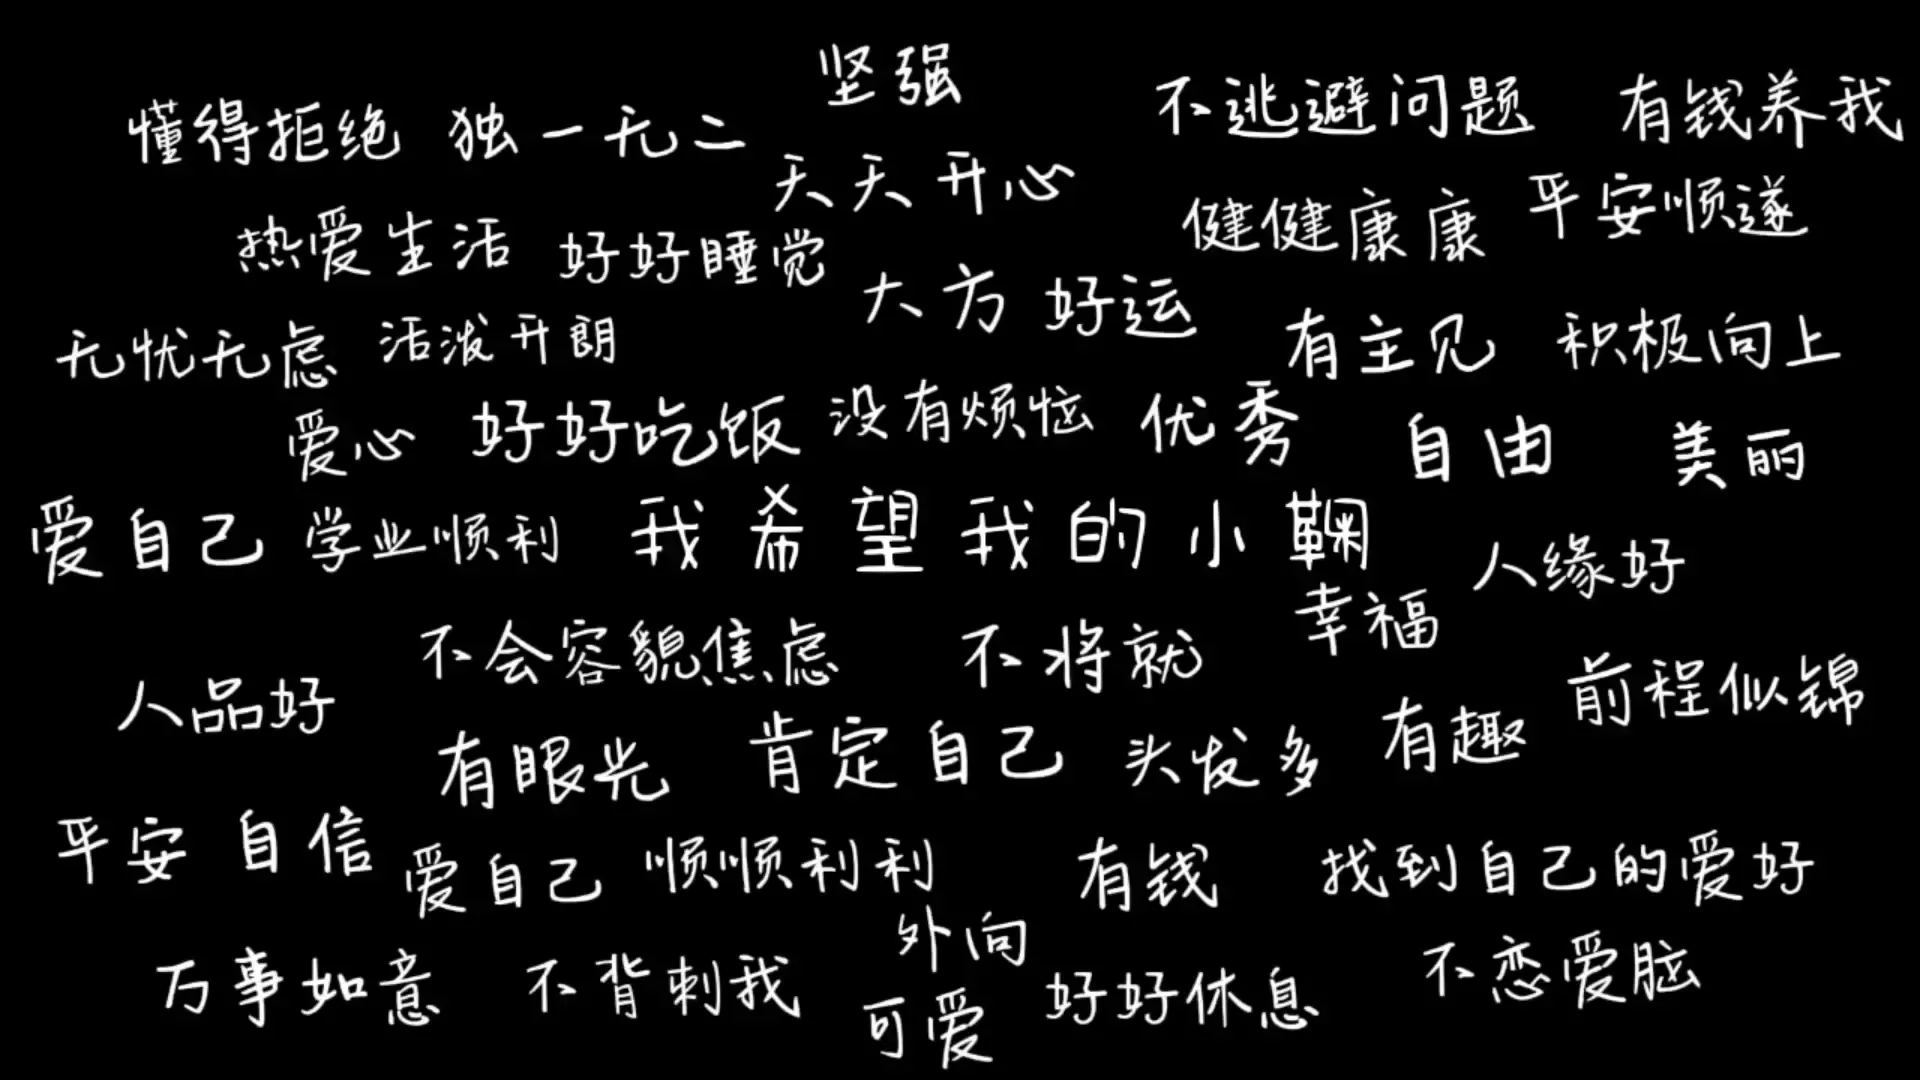 坚强
懂得拒绝 独一无二
不逃避问题 有钱养我
天天开心
热爱生活 好好睡觉
健健康康 平安顺遂
大方 好运
无忧无虑 活泼开朗
有主见 积极向上
爱心 好好吃饭 没有烦恼 优秀
自由 美丽
爱自己 学业顺利 我希望我的小鞠
人缘好
幸福
不会容貌焦虑 不将就
人品好
前程似锦
有眼光 肯定自己 头发多 有趣
平安 自信
爱自己 顺顺利利 有钱 找到自己的爱好
外向
万事如意 不背刺我
好好休息 不恋爱脑
可爱